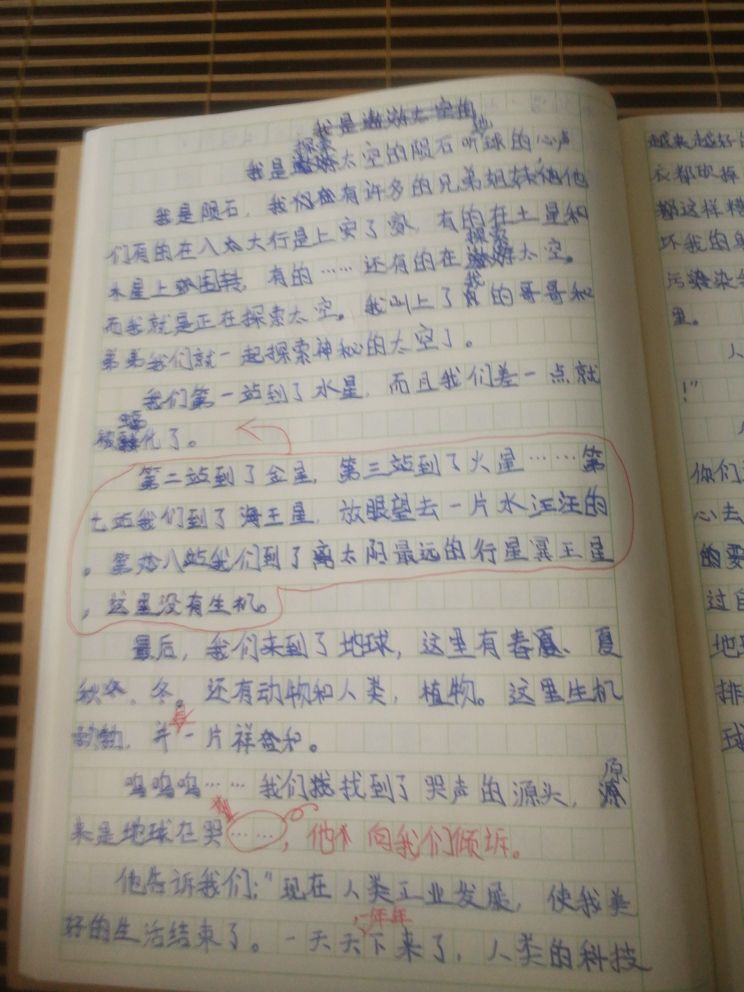 我是遨游太空的
我是探索太空的陨石听地球的心声
我是陨石，我们有许多的兄弟姐妹他
们有的在八大行是上安了家，有的在土星和
木星上围转，有的……还有的在探索太空。
而我就是正在探索太空。我叫上了我的哥哥和
弟弟我们就一起探索神秘的太空了。
我们第一站到了水星，而且我们差一点就
被化了。
第二站到了金星，第三站到了火星……第
七站我们到了海王星，放眼望去一片水汪汪的
。第八站我们到了离太阳最远的行星冥王星
，这里没有生机。
最后，我们来到了地球，这里有春、夏
秋、冬。还有动物和人类，植物。这里生机
勃勃，并一片祥和。
呜呜呜……我们找到了哭声的源头，原
来是地球在哭……，他向我们倾诉。
他告诉我们："现在人类工业发展，使我美
好的生活结束了。一天天一年年下来了，人类的科技
越来越好
衣都
都这样
坏我的
污染
里。
人
！"
你们
心去
的要
过自
地球
排
球